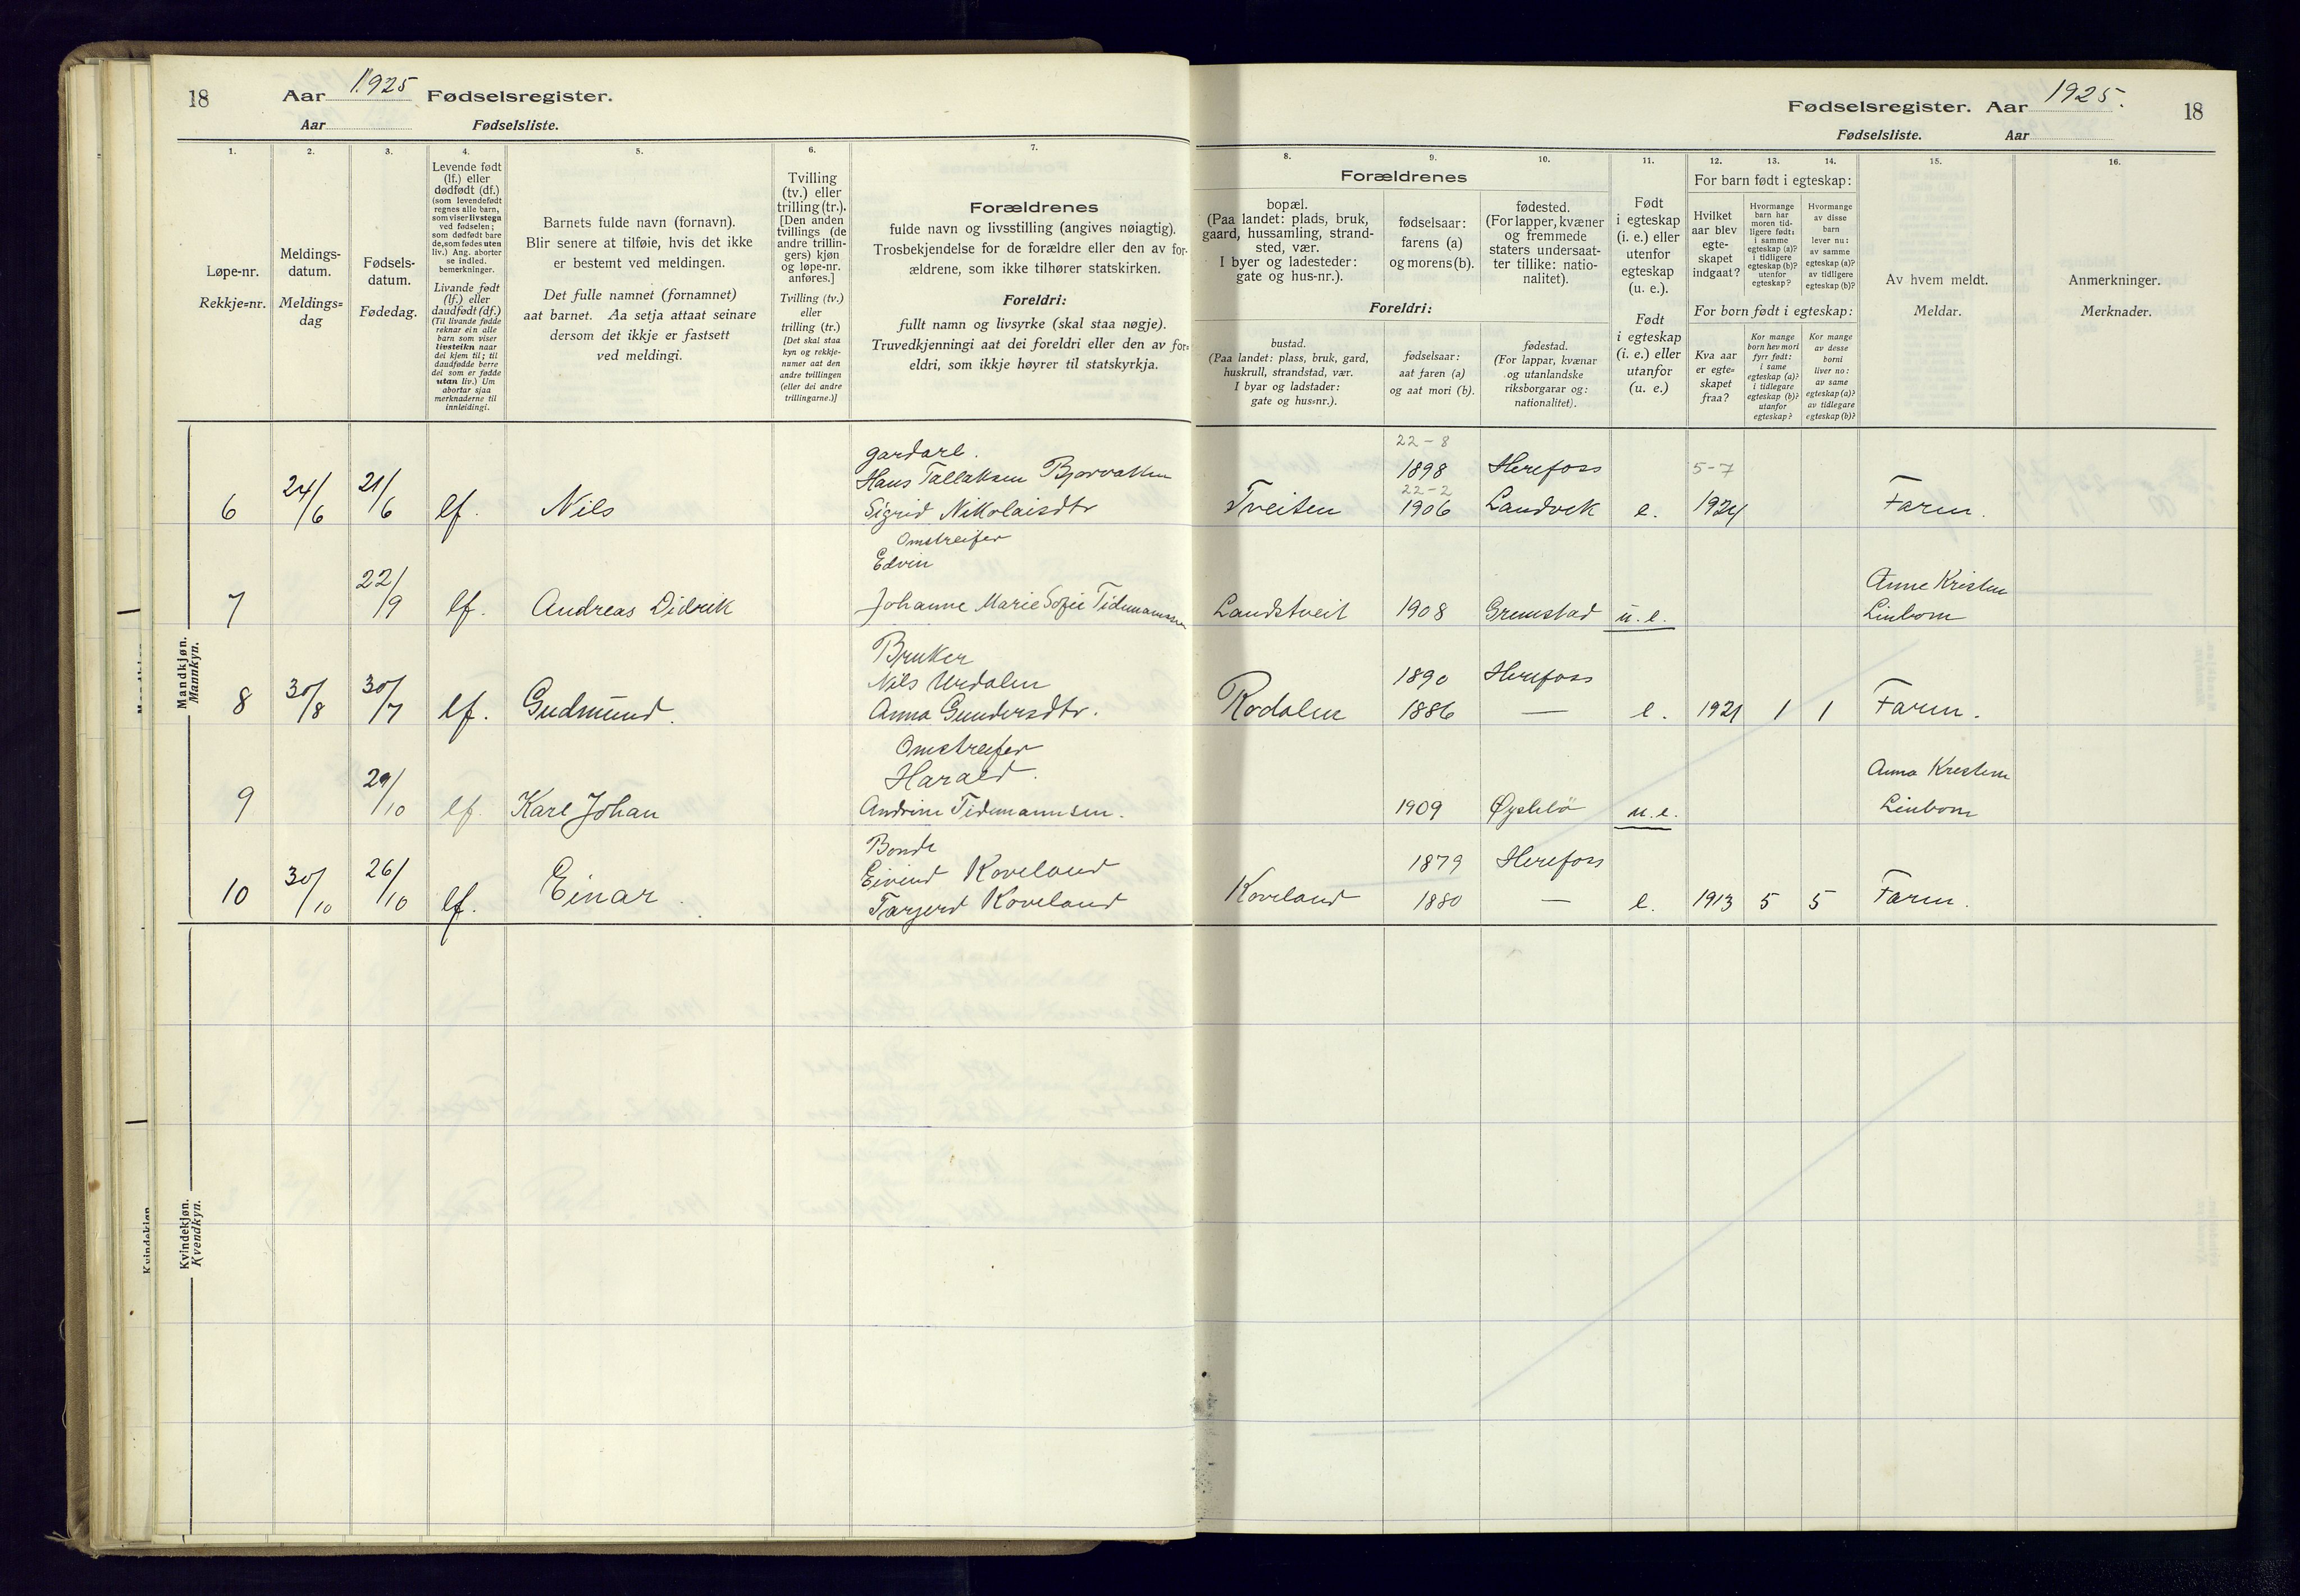 18 Aar 1925 Fødselsregister.
Aar Fødselsliste.
Fødselsregister. Aar 1925. 18
Fødselsliste. Aar
1.
Løpe-nr.
Rekkje=nr.
2.
Meldings-
datum.
Meldings=
dag
3.
Fødsels-
datum.
Fødedag.
4.
Levende født
(lf.) eller
dødfødt (df.)
(som levendefødt
regnes alle barn,
som viser livstegn
ved fødselen;
som dødfødt bare
de, som fødes uten
liv.) Ang. aborter
se indled.
bemerkninger.
Livande født
(lf.) eller
daudfødt (df.)
(Til livande fødde
reknar ein alle
barn som viser
livsteikn naar
dei kjem til; til
daudfødde berre
dei som er fødde
utan liv.) Um
abortar sjaa
merknaderne til
innleidingi.
5.
Barnets fulde navn (fornavn).
Blir senere at tilføie, hvis det ikke
er bestemt ved meldingen.
Det fulle namnet (fornamnet)
aat barnet. Aa setja attaat seinare
dersom det ikkje er fastsett
ved meldingi.
6.
Tvilling
(tv.) eller
trilling (tr.).
[Den anden
tvillings (de
andre trillin-
gers) kjøn
og løpe-nr.
anføres.]
Tvilling (tv.)
eller
trilling (tr.)
[Det skal staa
kyn og rekkje-
numer aat den
andre tvillingen
(eller dei andre
trillingarne.)]
7.
Forældrenes
fulde navn og livsstilling (angives nøiagtig).
Trosbekjendelse for de forældre eller den av for-
ældrene, som ikke tilhører statskirken.
Foreldri:
fullt namn og livsyrke (skal staa nøgje).
Truvedkjenningi aat dei foreldri eller den av for=
eldri, som ikkje høyrer til statskyrkja.
Forældrenes
8.
bopæl.
(Paa landet: plads, bruk,
gaard, hussamling, strand-
sted, vær.
I byer og ladesteder:
gate og hus-nr.).
9.
fødselsaar:
farens (a)
og morens (b).
10.
fødested.
(For lapper, kvæner
og fremmede
staters undersaat-
ter tillike: natio-
nalitet).
Foreldri:
bustad.
(Paa landet: plass, bruk, gard,
huskrull, strandstad, vær.
I byar og ladstader:
gate og hus=nr.).
fødselsaar:
aat faren (a)
og aat mori (b).
fødestad.
(For lappar, kvænar
og utanlandske
riksborgarar og:
nationalitet).
11.
Født
i egteskap
(i. e.) eller
utenfor
egteskap
(u. e.).
Født
i egteskap
(i. e.) eller
utanfor
(u. e.)
For barn født i egteskap:
12.
Hvilket
aar blev
egte-
skapet
indgaat?
13.
Hvormange
barn har
moren tid-
ligere født:
i samme
egteskap (a)?
i tidligere
egteskap (b)?
utenfor
egteskap?
14.
Hvormange
av disse
barn
lever nu:
av samme
egteskap (a)?
av tidligere
egteskap (b)?
For born født i egteskap:
Kva aar
er egte=
skapet
fraa?
Kor mange
born hev mori
fyrr født:
i same
egteskap (a)?
i tidlegare
egteskap (b)?
utanfor
egteskap?
Kor mange
av desse
borni
liver no:
av same
egteskap (a)?
av tidlegare
egteskap (b)?
15.
Av hvem meldt.
Meldar.
16.
Anmerkninger.
Merknader.
Mandkjøn.
Mannkyn.
gardarb. 22-8
Hans Tallaksen Bjorvatten 1898 Herefoss 5-7
6 24/6 21/6 lf. Nils Sigrid Nikolaisdtr Tveiten 22-2 1906 Landvik e. 1924 Faren.
Omstreifer
Edvin Anne Kristen
7 22/9 lf. Andreas Didrik Johanne Marie Sofie Tidemannsen Landstveit 1908 Grimstad u. e. Linbom
Bruker
Nils Urdalen 1890 Herefoss
8 30/8 30/7 lf. Gudmund. Anna Gundersdtr. Rodalen 1886 — e. 1921 1 1 Faren.
Omstreifer
Harald. Anna Kristine
9 29/10 lf. Karl Johan Andrine Tidemannsen. 1909 Øyslebö u. e. Linbom
Bonde
Eivind Koveland 1879 Herefoss
10 30/10 26/10 lf. Einar. Targerd Koveland Koveland 1880 — e. 1913 5 5 Faren.
Kvindekjøn.
Kvendkyn.